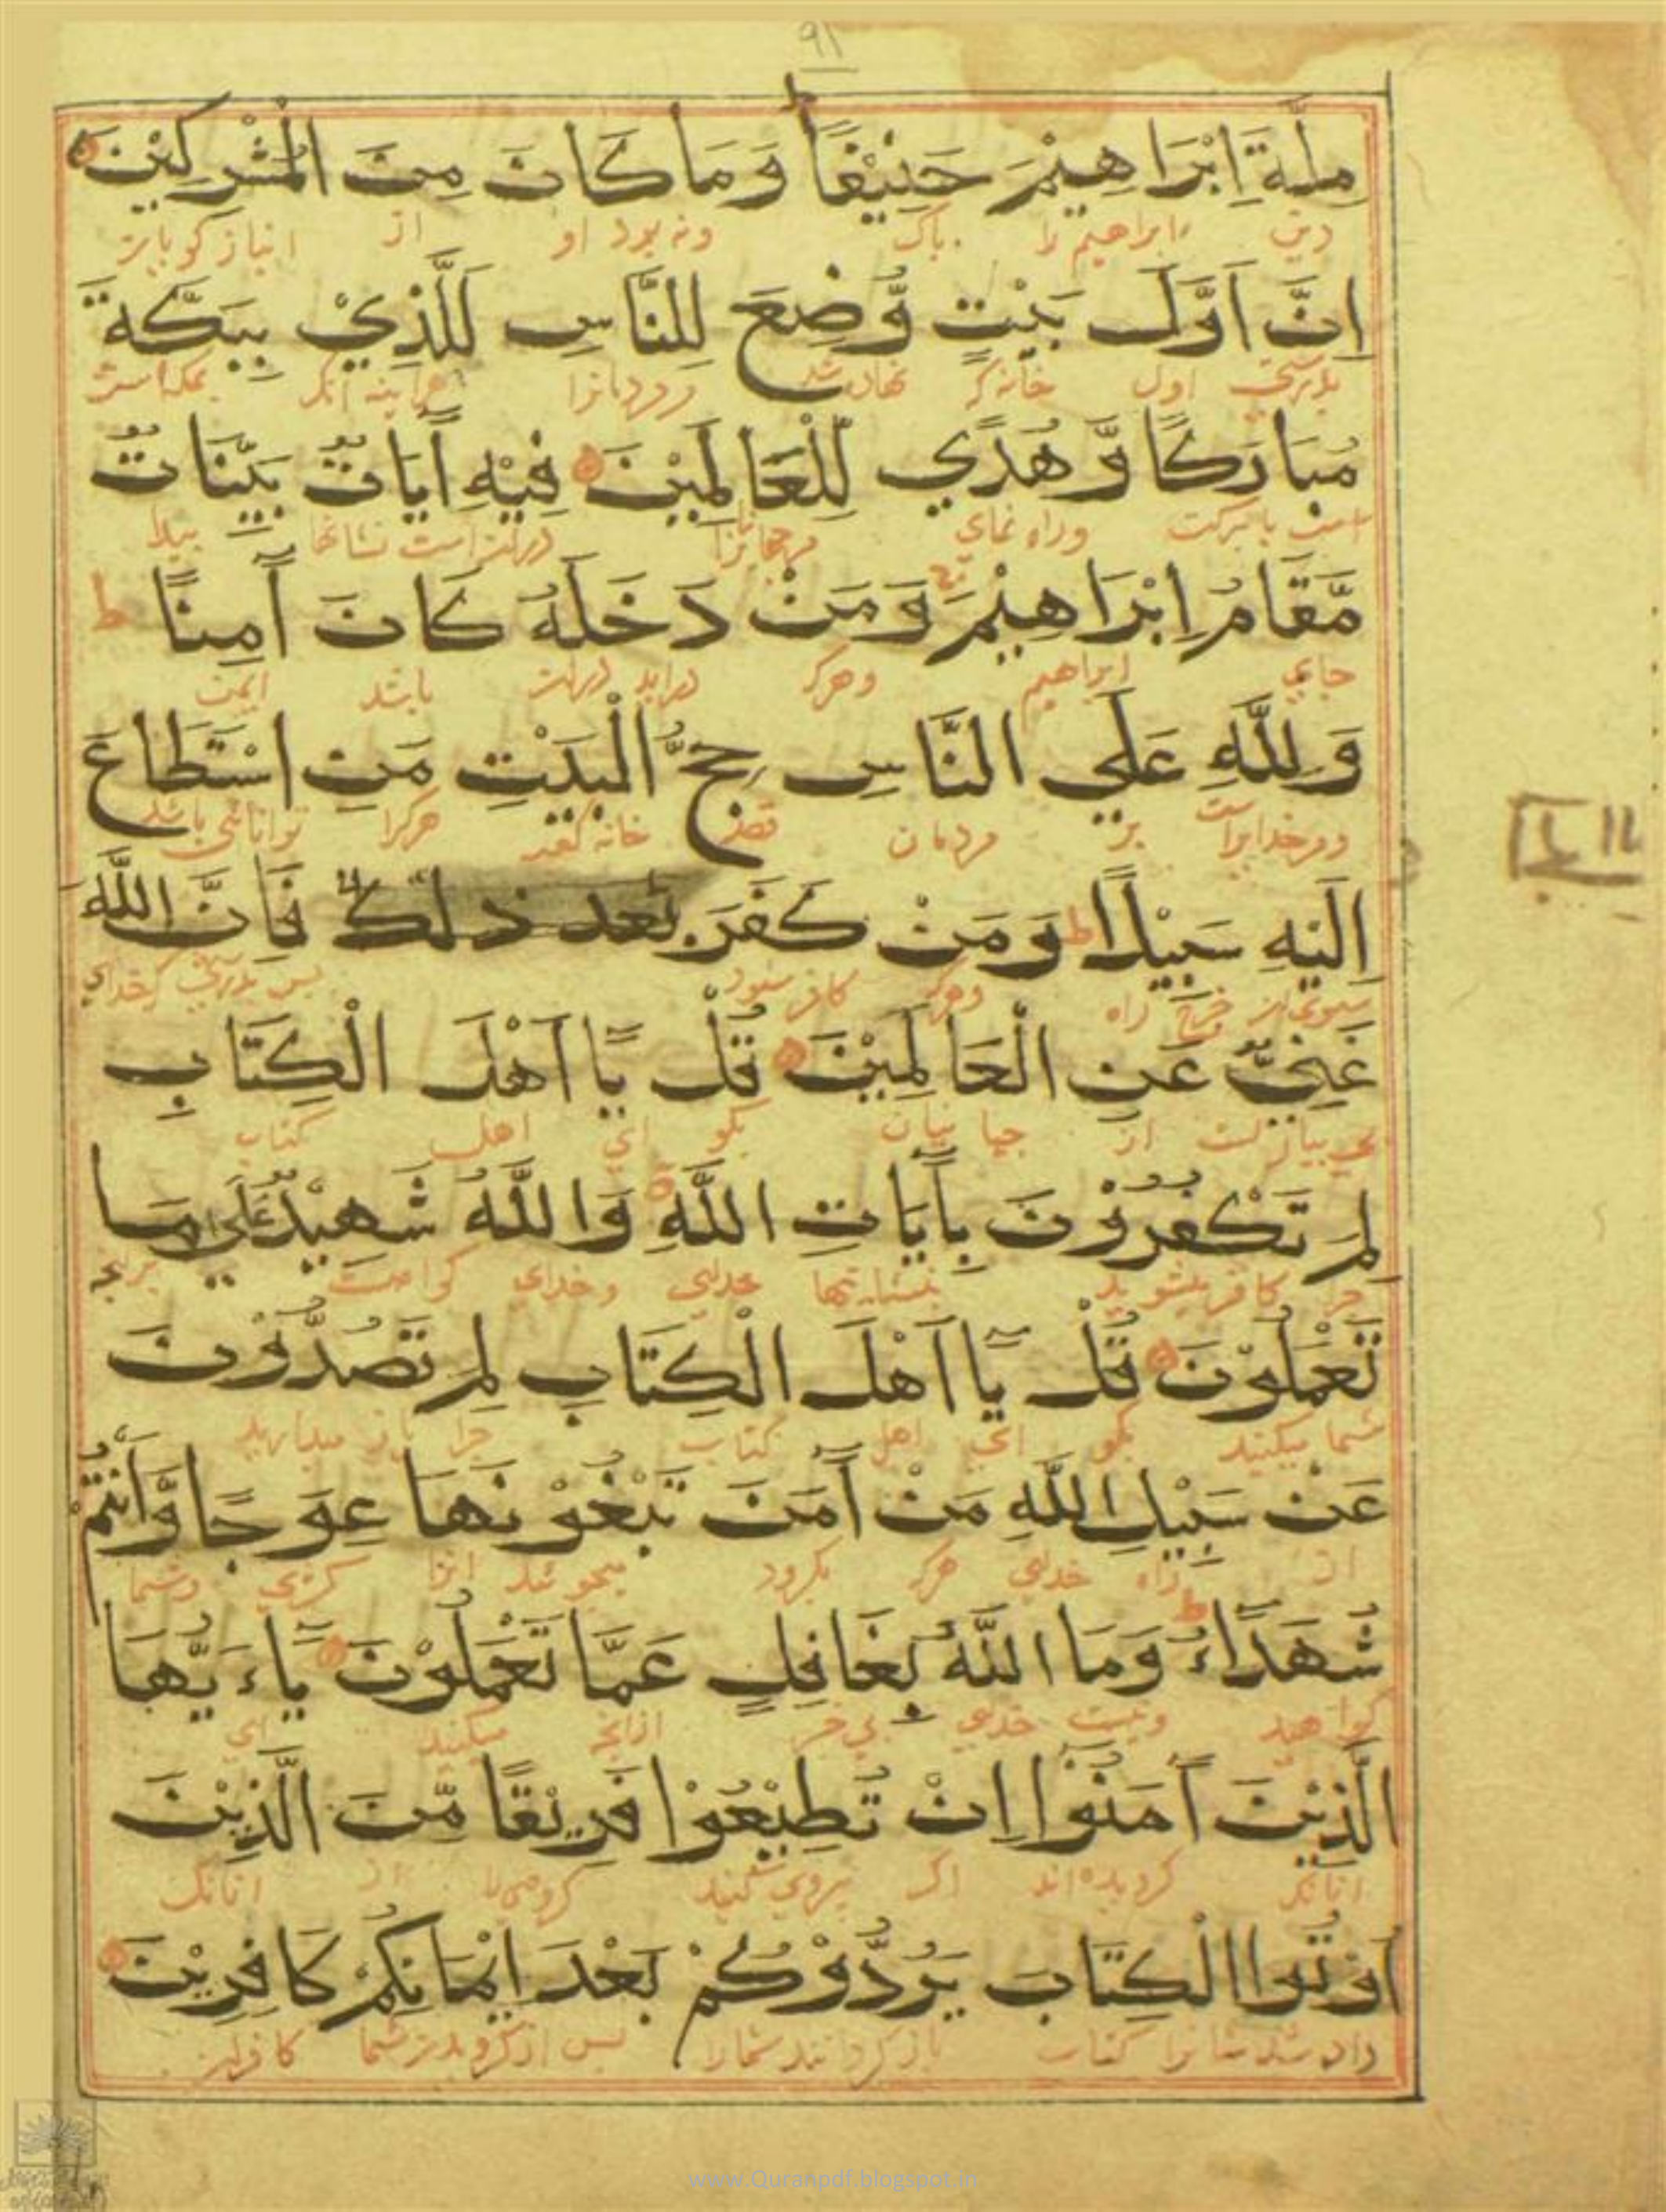 ٩١
مِلَّةَ اِبْرَاهِيْمَ حَنِيْفًا وَمَا كَانَ مِنَ الْمُشْرِكِيْنَ
دين ابراهيم را پاک ونه بود او از انبازکویان
اِنَّ اَوَّلَ بَيْتٍ وُّضِعَ لِلنَّاسِ لَلَّذِيْ بِبَكَّةَ
بدرستی اول خانه که نهاده شد مردمانرا هراینه آنکه بمکه است
مُبَارَكًا وَّهُدًي لِّلْعَالَمِيْنَ فِيْهِ آيَاتٌ بَيِّنَاتٌ
است با برکت وراه نمای مرجهانیانرا درانست نشانها پیدا
مَّقَامُ اِبْرَاهِيْمَ وَمَنْ دَخَلَهُ كَانَ آمِنًا ط
جای ابراهیم وهرکه دراید دران باشد ایمن
وَلِلّٰهِ عَلَي النَّاسِ حِجُّ الْبَيْتِ مَنِ اسْتَطَاعَ
ومرخدایراست بر مردمان قصد خانه کعبه هرکرا توانائی باشد
اِلَيْهِ سَبِيْلًا ط وَمَنْ كَفَرَ بعد ذلك فَاِنَّ اللّٰهَ
راه وهرکه کافر شود پس بدرستی که خدای
غَنِيٌّ عَنِ الْعَالَمِيْنَ قُلْ يَا اَهْلَ الْكِتَابِ
بی نیاز است از جهانیان بگو ای اهل کتاب
لِمَ تَكْفُرُوْنَ بِآيَاتِ اللّٰهِ وَاللّٰهُ شَهِيْدٌ عَلَي مَا
چرا کافر میشوید بنشانیها خدای وخدای کواهست برانچه
تَعْمَلُوْنَ قُلْ يَا اَهْلَ الْكِتَابِ لِمَ تَصُدُّوْنَ
شما میکنید بگو ای اهل کتاب چرا باز میدارید
عَنْ سَبِيْلِ اللّٰهِ مَنْ آمَنَ تَبْغُوْنَهَا عِوَجًا وَّاَنْتُمْ
از راه خدای هرکه بگرود میجوئید انرا کژی وشما
شُهَدَاءُ ط وَمَا اللّٰهُ بِغَافِلٍ عَمَّا تَعْمَلُوْنَ يَاءَيُّهَا
کواهید ونیست خدای بی خبر ازانچه میکنید ای
الَّذِيْنَ آمَنُوْا اِنْ تُطِيْعُوْا فَرِيْقًا مِّنَ الَّذِيْنَ
انانکه کرویده اند اکر پیروی کنید کروهی را از انانکه
اُوْتُوا الْكِتَابَ يَرُدُّوْكُمْ بَعْدَ اِيْمَانِكُمْ كَافِرِيْنَ
داده شد شانرا کتاب باز کردانند شمارا پس از کرویدن شما کافران
www.Quranpdf.blogspot.in